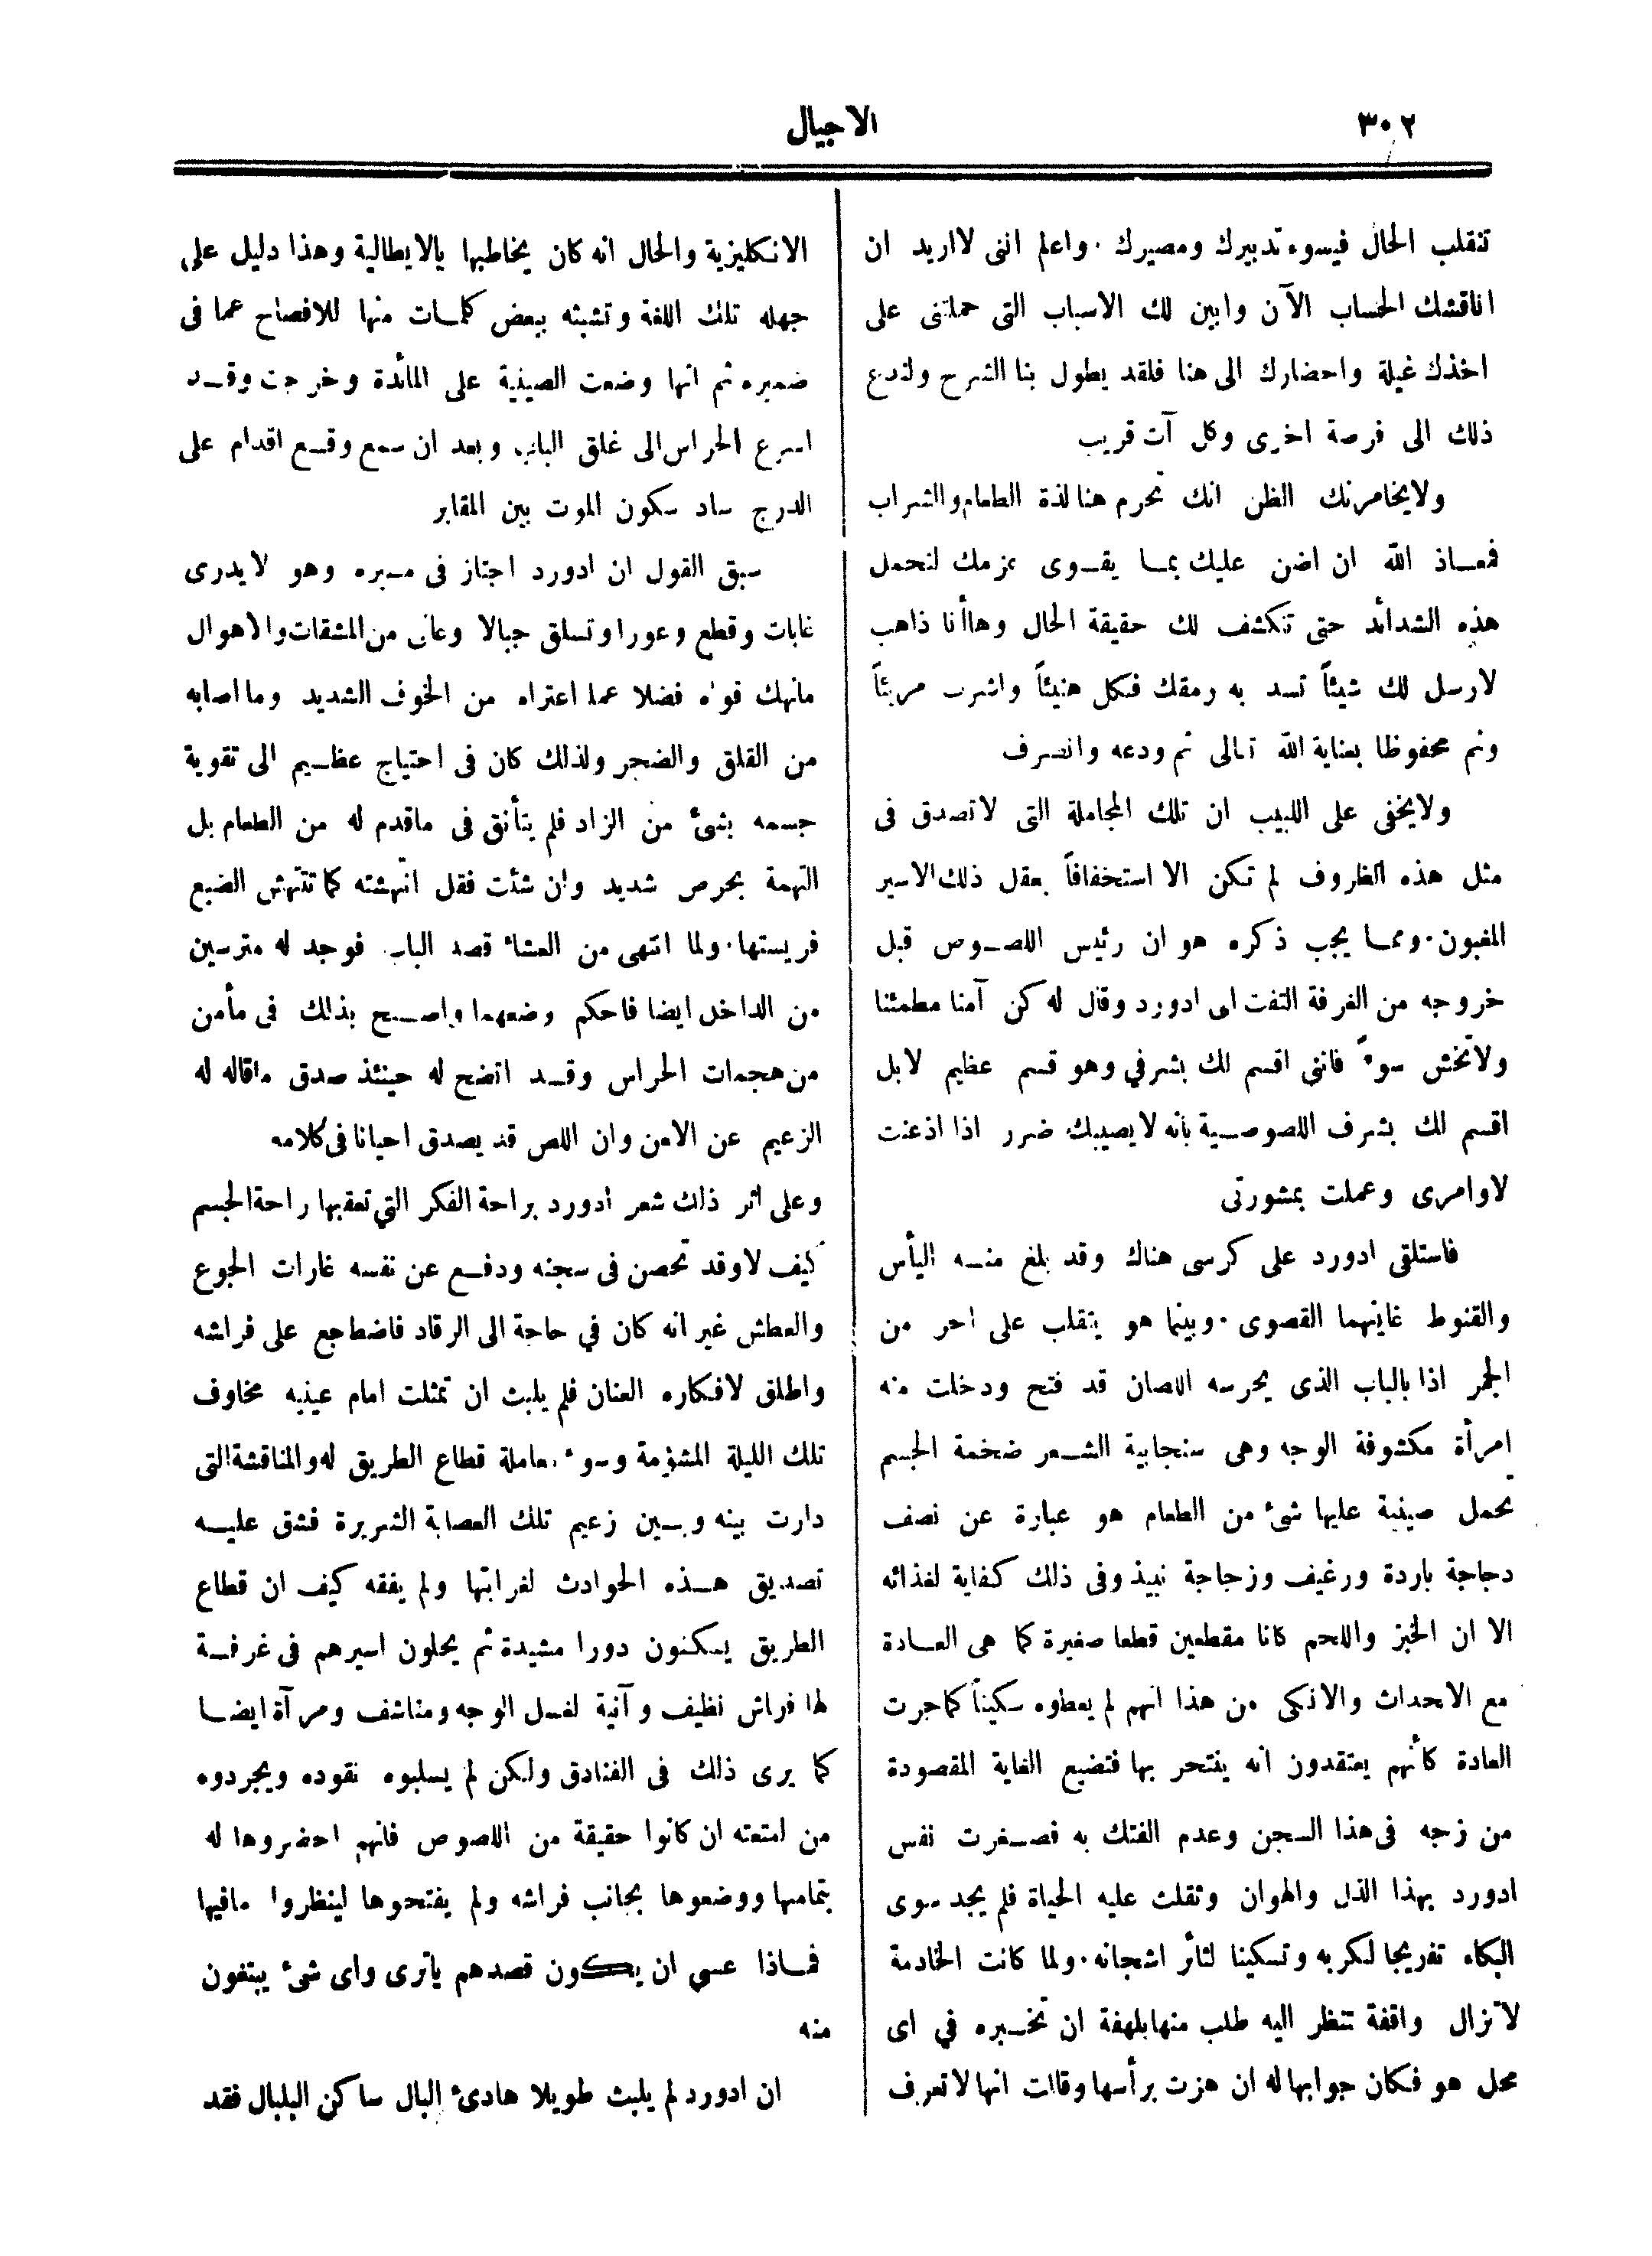 ٣٠٢
الاجيال
تنقلب الحال فيسوء تدبيرك ومصيرك ٠ واعلم اننى لا اريد ان
اناقشك الحساب الآن وابين لك الاسباب التى حملتنى على
اخذك غيلة واحضارك الى هنا فلقد يطول بنا الشرح ولندع
ذلك الى فرصة اخرى وكل آت قريب
ولا يخامرنك الظن انك تحرم هنا لذة الطعام والشراب
فمعاذ الله ان اضن عليك بما يقوى عزمك لتحمل
هذه الشدائد حتى تنكشف لك حقيقة الحال وها أنا ذاهب
لارسل لك شيئاً تسد به رمقك فكل هنيئاً واشرب مريئاً
ونم محفوظا بعناية الله تعالى ثم ودعه وانصرف
ولا يخفى على اللبيب ان تلك المجاملة التى لا تصدق فى
مثل هذه الظروف لم تكن الا استخفافاً بعقل ذلك الاسير
المغبون ٠ ومما يجب ذكره هو ان رئيس اللصوص قبل
خروجه من الغرفة التفت الى ادورد وقال له كن آمنا مطمئنا
ولا تخش سوءً فاننى اقسم لك بشرفي وهو قسم عظيم لا بل
اقسم لك بشرف اللصوصية بأنه لا يصيبك ضرر اذا اذعنت
لاوامرى وعملت بمشورتى
فاستلقى ادورد على كرسى هناك وقد بلغ منه اليأس
والقنوط غايتهما القصوى ٠ وبينما هو يتقلب على احر من
الجمر اذا بالباب الذى يحرسه اللصان قد فتح ودخلت منه
امرأة مكشوفة الوجه وهى سنجابية الشعر ضخمة الجسم
تحمل صينية عليها شئ من الطعام هو عبارة عن نصف
دجاجة باردة ورغيف وزجاجة نبيذ وفى ذلك كفاية لغذائه
الا ان الخبز واللحم كانا مقطعين قطعا صغيرة كما هى العادة
مع الاحداث والانكى من هذا انهم لم يعطوه سكيناً كما جرت
العادة كأنهم يعتقدون انه ينتحر بها فتضيع الغاية المقصودة
من زجه فى هذا السجن وعدم الفتك به فصغرت نفس
ادورد بهذا الذل والهوان وثقلت عليه الحياة فلم يجد سوى
البكاء تفريجا لكربه وتسكينا لثائر اشجانه ٠ ولما كانت الخادمة
لا تزال واقفة تنظر اليه طلب منها بلهفة ان تخبره في اى
محل هو فكان جوابها له ان هزت برأسها وقالت انها لا تعرف
الانكليزية والحال انه كان يخاطبها بالايطالية وهذا دليل على
جهله تلك اللغة وتشبثه ببعض كلمات منها للافصاح عما فى
ضميره ثم انها وضعت الصينية على المائدة وخرجت وقد
اسرع الحراس الى غلق الباب وبعد ان سمع وقع اقدام على
الدرج ساد سكون الموت بين المقابر
سبق القول ان ادورد اجتاز فى مسيره وهو لا يدرى
غابات وقطع وعورا وتسلق جبالا وعانى من المشقات والاهوال
مانهك قواه فضلا عما اعتراه من الخوف الشديد وما اصابه
من القلق والضجر ولذلك كان فى احتياج عظيم الى تقوية
جسمه بشئ من الزاد فلم يتأنق فى ماقدم له من الطعام بل
التهمة بحرص شديد وان شئت فقل انتهشته كما تنتهش الضبع
فريستها ٠ ولما انتهى من العشاء قصد الباب فوجد له مترسين
من الداخل ايضا فاحكم وضعهما واصبح بذلك فى مأمن
من هجمات الحراس وقد اتضح له حينئذ صدق ماقاله له
الزعيم عن الامن وان اللص قد يصدق احيانا فى كلامه
وعلى اثر ذلك شعر ادورد براحة الفكر التي تعقبها راحة الجسم
كيف لا وقد تحصن فى سجنه ودفع عن نفسه غارات الجوع
والعطش غير انه كان في حاجة الى الرقاد فاضطجع على فراشه
واطلق لافكاره العنان فلم يلبث ان تمثلت امام عينيه مخاوف
تلك الليلة المشؤمة وسوء معاملة قطاع الطريق له والمناقشة التى
دارت بينه وبين زعيم تلك العصابة الشريرة فشق عليه
تصديق هذه الحوادث لغرابتها ولم يفقه كيف ان قطاع
الطريق يسكنون دورا مشيدة ثم يحلون اسيرهم فى غرفة
لها فراش نظيف وآنية لغسل الوجه ومناشف ومرآة ايضا
كما يرى ذلك فى الفنادق ولكن لم لم يسلبوه نقوده ويجردوه
من امتعته ان كانوا حقيقة من اللصوص فانهم احضروها له
بتمامها ووضعوها بجانب فراشه ولم يفتحوها لينظروا مافيها
فماذا عسي ان يكون قصدهم ياترى واى شئ يبتغون
منه
ان ادورد لم يلبث طويلا هادئ البال ساكن البلبال فقد